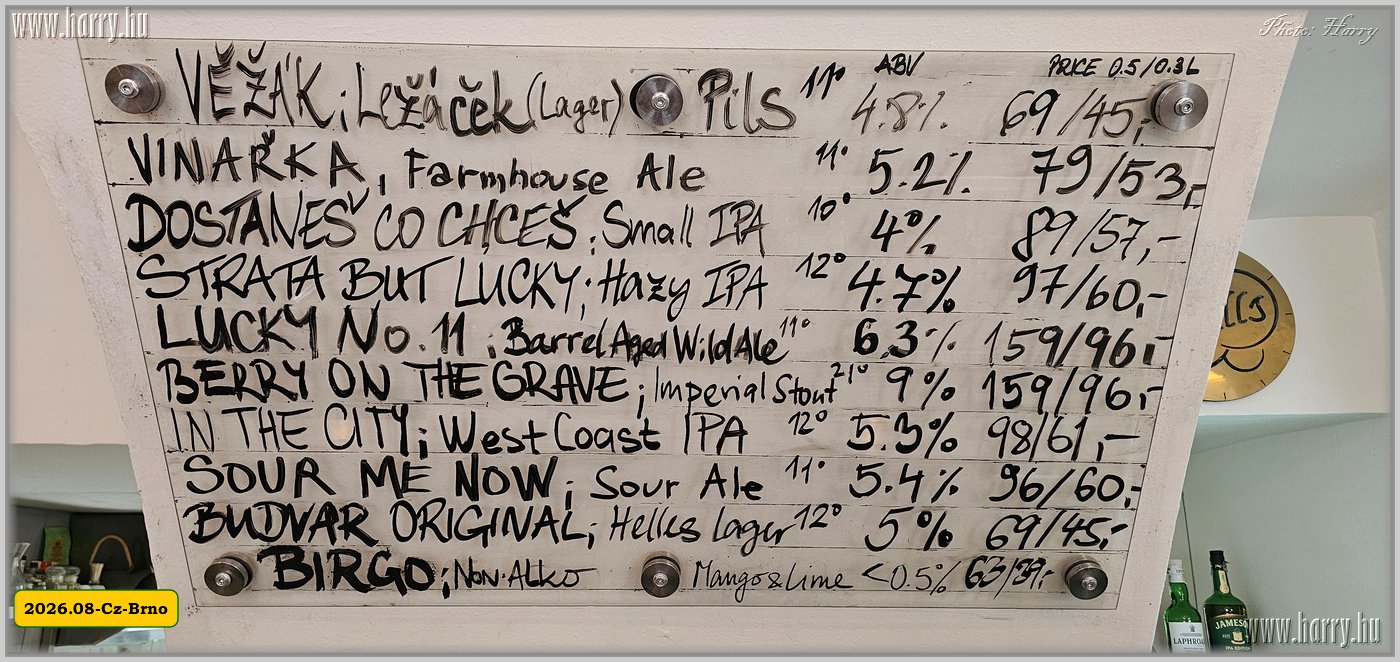 www.harry.hu
Photo: Harry
ABV PRICE 0.5/0.3L
VĚŽÁK; Ležáček (Lager) Pils 11° 4.8% 69/45,-
VINAŘKA, Farmhouse Ale 11° 5.2% 79/53,-
DOSTANEŠ CO CHCEŠ; Small IPA 10° 4% 89/57,-
STRATA BUT LUCKY; Hazy IPA 12° 4.7% 97/60,-
LUCKY No. 11; Barrel Aged Wild Ale 11° 6.3% 159/96,-
BERRY ON THE GRAVE; Imperial Stout 21° 9% 159/96,-
IN THE CITY; West Coast IPA 12° 5.3% 98/61,-
SOUR ME NOW; Sour Ale 11° 5.4% 96/60,-
BUDVAR ORIGINAL; Helles Lager 12° 5% 69/45,-
BIRGO; Non-Alko Mango & Lime <0.5% 63/39,-
2026.08-Cz-Brno
LAPHROAIG
JAMESON
IPA EDITION
www.harry.hu